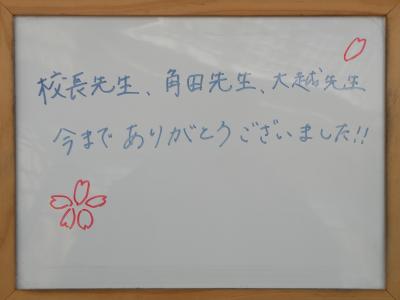 校長先生、角田先生、大越先生
今までありがとうございました!!